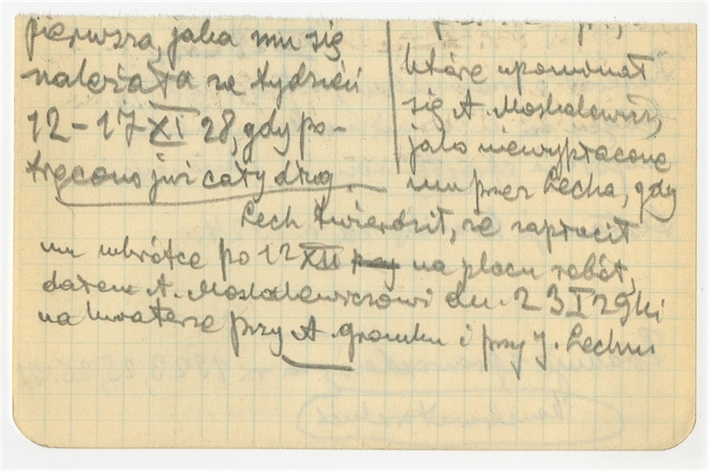 pierwsza, jaka mu się
należała za tydzień
12-17 XI 28, gdy po-
trącono już cały dług.
które upominał
się A. Moskalewicz,
jako niewypłacone
mu przez Lecha, gdy
Lech twierdził, że zapłacił
mu wkrótce po 12 XII na placu robót,
dałem A. Moskalewiczowi dn. 23 I 29
na kwaterze przy A. Gromku i przy J. Lechu